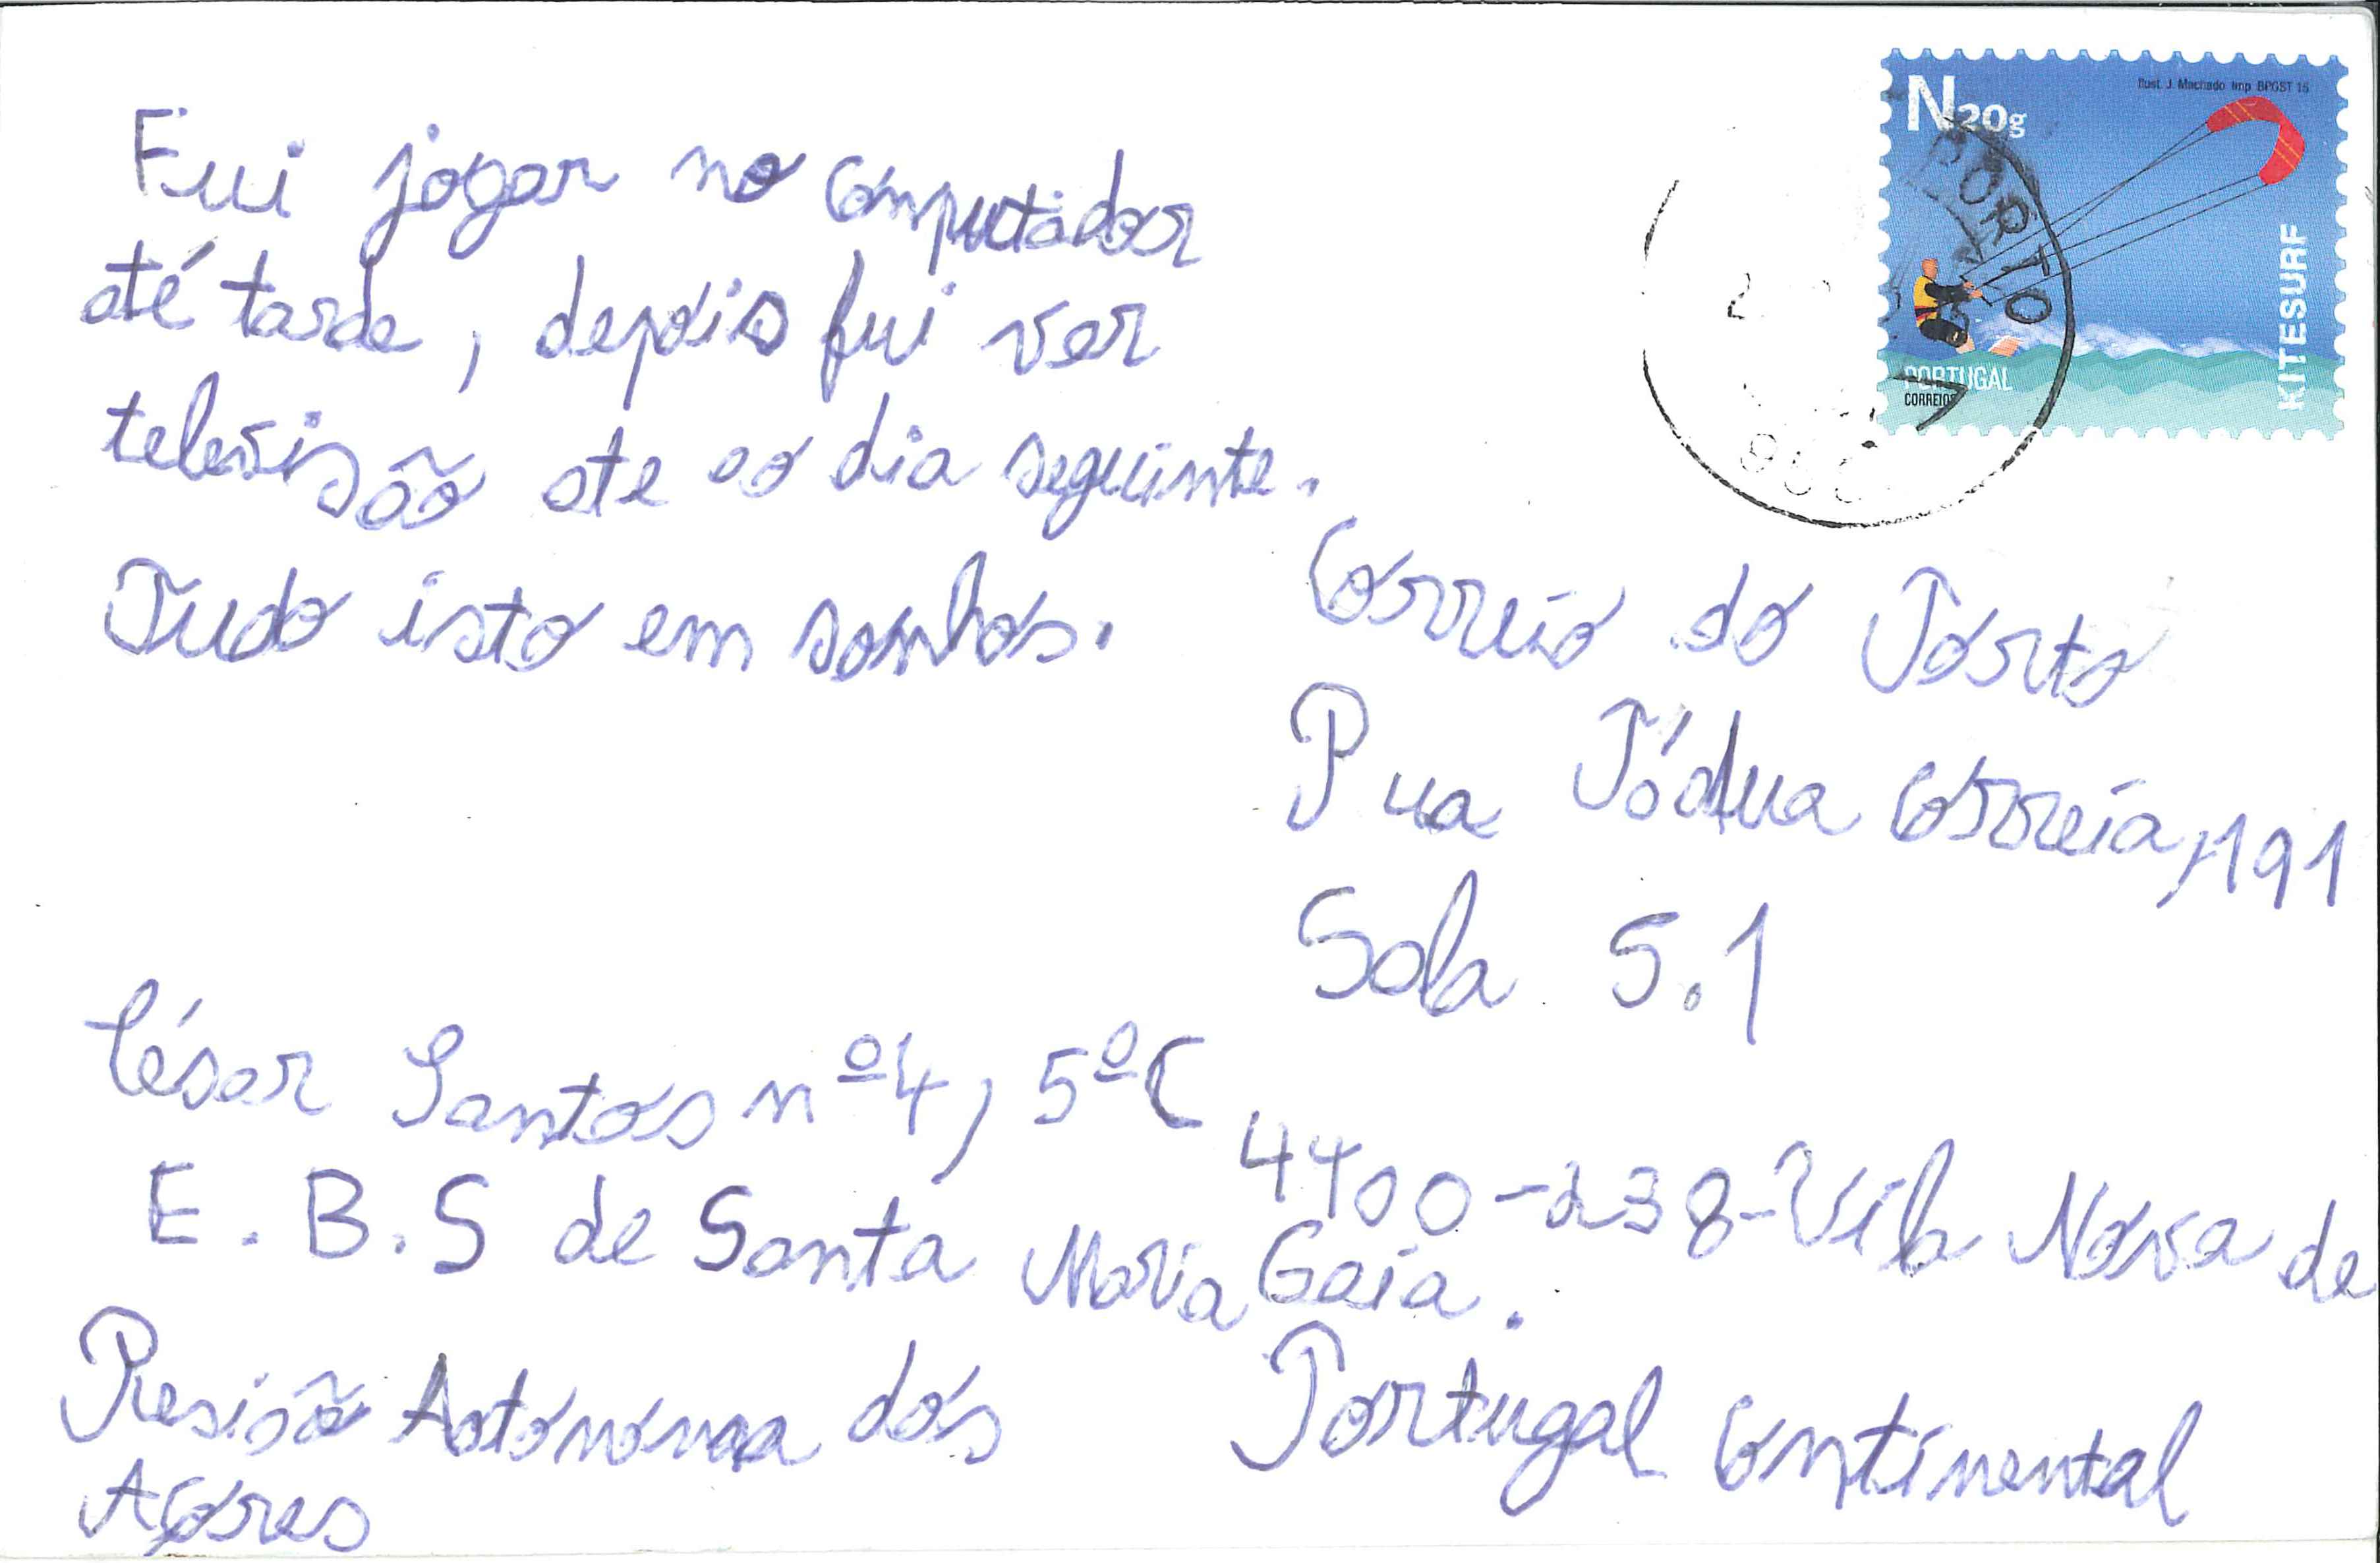 Fui jogar no computador
até tarde, depois fui ver
televisão ate ao dia seguinte.
Tudo isto em sonhos.
César Santos nº4, 5ºC
E.B.S de Santa Maria
Região Autonoma dos
Açores
N20g
Ilust. J. Machado Imp. BPOST 15
KITESURF
PORTUGAL
CORREIOS
PORTO
Correio do Porto
Rua Pádua Correia, 191
Sala 5.1
4400-238-Vila Nova de
Gaia.
Portugal Continental